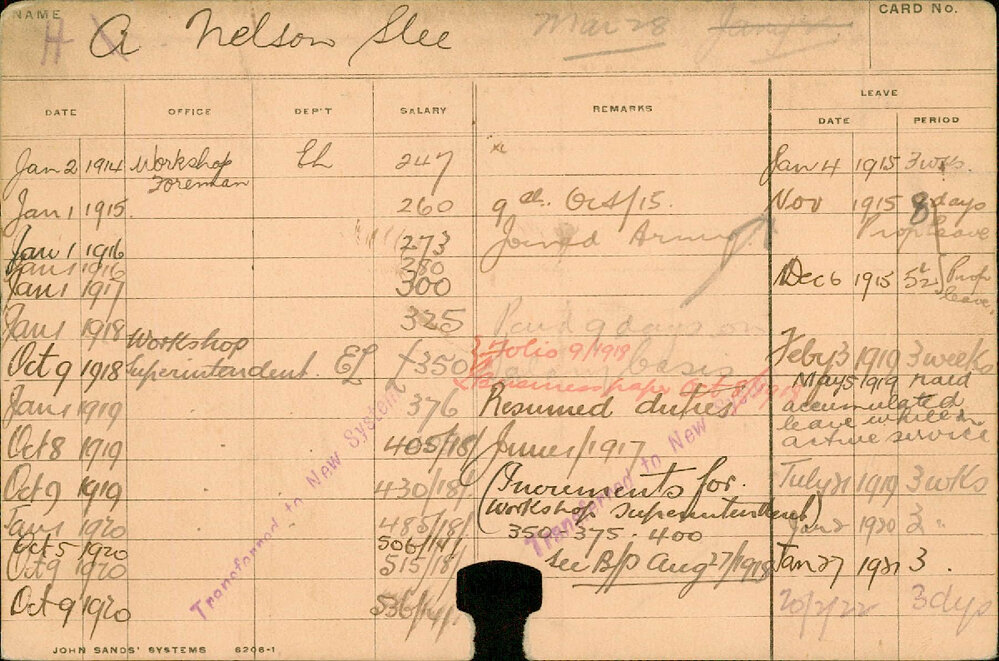 NAME
CARD No.
H A Nelson Slee Mar 28
LEAVE
DATE OFFICE DEP'T SALARY REMARKS DATE PERIOD
Jan 2 1914 Workshop El 247 Jan 4 1915 3 wks.
Foreman
Jan 1 1915. 260 9th Oct/15. Nov 1915 8 days
Joined Army. Prop leave
Jan 1 1916 273
Jan 1 1916 280
Jan 1 1917 300 Dec 6 1915 5½ Prop
leave.
Jan 1 1918 325 Paid 9 days on
Workshop
Oct 9 1918 Superintendent. EL +350 Folio 9/1918 Feby 3 1919 3 weeks
basis
Business paper Oct 9/1918 May 5 1919 Paid
Jan 1 1919 376 Resumed duties accumulated
leave while on
active service
Oct 8 1919 405/18/ June 1/1917
Oct 9 1919 430/18/. (Increments for July 21 1919 3 wks
(Workshop Superintendent)
Jan 1 1920 485/18/ 350 - 375. 400 Jan 2 1920 3 "
Oct 5 1920 506/14/
Oct 9 1920 515/18/ See B/P Aug 27/1918 Jan 27 1921 3.
Oct 9 1920 536/14/ 20/2/22 3 dys
Transferred to New System
Transferred to New System
JOHN SANDS' SYSTEMS 6206-1